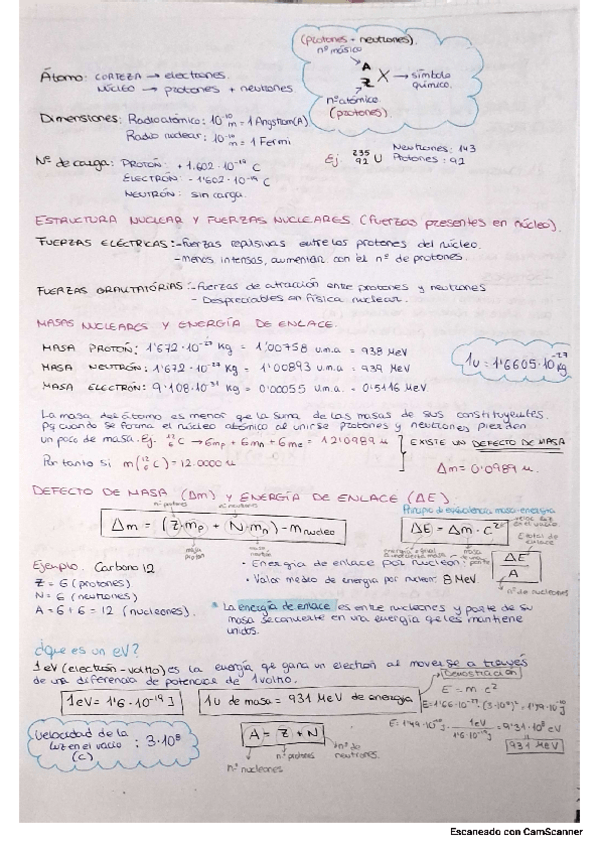 (protones + neutrones).
nº másico
A
Z X → símbolo químico.
nº atómico
(protones)
Átomo: CORTEZA → electrones.
NÚCLEO → protones + neutrones
Dimensiones: Radio atómico: 10⁻¹⁰ m = 1 Angstrom(A)
Radio nuclear: 10 m = 1 Fermi
Nº de carga: PROTÓN: +1.602·10⁻¹⁹ C
ELECTRÓN: -1'602·10⁻¹⁹ C
NEUTRÓN: sin carga.
Ej: ²³⁵₉₂ U
Neutrones: 143
Protones: 92
ESTRUCTURA NUCLEAR Y FUERZAS NUCLEARES. (fuerzas presentes en núcleo).
FUERZAS ELÉCTRICAS: - fuerzas repulsivas entre los protones del núcleo.
- menos intensas, aumentan con el nº de protones.
FUERZAS GRAVITATORIAS: - fuerzas de atracción entre protones y neutrones
- Despreciables en física nuclear.
MASAS NUCLEARES Y ENERGÍA DE ENLACE.
MASA PROTÓN: 1'672·10 kg = 1'00758 u.m.a = 938 MeV
MASA NEUTRÓN: 1'672·10 kg = 1'00893 u.m.a = 939 MeV
MASA ELECTRÓN: 9'108·10⁻³¹ kg = 0'00055 u.m.a. = 0.5116 MeV.
1u = 1'6605·10⁻²⁷ kg
La masa del átomo es menor que la suma de las masas de sus constituyentes.
Pq cuando se forma el núcleo atómico al unirse protones y neutrones pierden
un poco de masa. Ej. ¹²₆C → 6mp + 6mn + 6me = 12'0989 u
EXISTE UN DEFECTO DE MASA
Por tanto si m(¹²₆C) = 12.0000 u
Δm = 0'0989 u.
DEFECTO DE MASA (Δm) y ENERGÍA DE ENLACE (ΔE)
nº protones
nº neutrones
Δm = (Z·mp + N·mn) - m núcleo
masa protón
masa neutrón
Principio de equivalencia masa-energía
ΔE = Δm·c²
en el vacío
E total de enlace
ΔE
A
nº de nucleones
Ejemplo. Carbono 12
Z = 6 (protones)
N = 6 (neutrones)
A = 6 + 6 = 12 (nucleones).
• Energía de enlace por nucleón:
• Valor medio de energía por nucleón: 8 MeV
* La energía de enlace es entre nucleones y parte de su
masa se convierte en una energía que les mantiene
unidos.
¿Que es un eV?
1eV (electrón-voltio) es la energía que gana un electrón al moverse a través
de una diferencia de potencial de 1 voltio.
Demostración
1eV = 1'6·10⁻¹⁹ J
1u de masa = 931 MeV de energía
E = m c²
E = 1'66·10⁻²⁷·(3·10⁸)² = 1'49·10⁻¹⁰ J
E = 1'49·10⁻¹⁰ J · 1eV / 1'6·10⁻¹⁹ J = 9'31·10⁸ eV
931 MeV
Velocidad de la luz en el vacío (c) : 3·10⁸
A = Z + N
nº nucleones
nº protones
nº de neutrones.
Escaneado con CamScanner